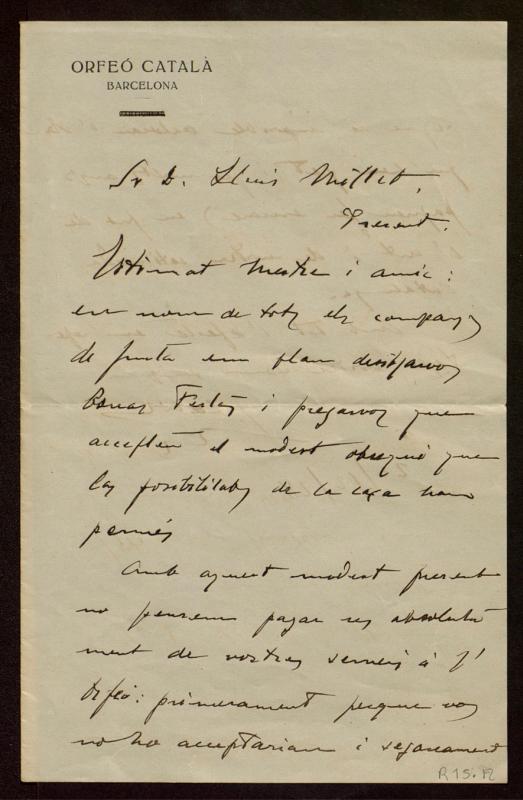 ORFEÓ CATALÀ
BARCELONA
Sr D. Lluis Millet.
Present.
Estimat Mestre i amic:
en nom de tots els companys
de Junta em plau desitjarvos
bonas Festas i pregarvos que
accepteu el modest obsequi que
las posibilitats de la caxa han
permés
Amb aquest modest present
no pensem pagar res absoluta
ment de vostres serveis á l'
Orfeó: primerament perque vos
no ho acceptariau i segonament
R 15.12